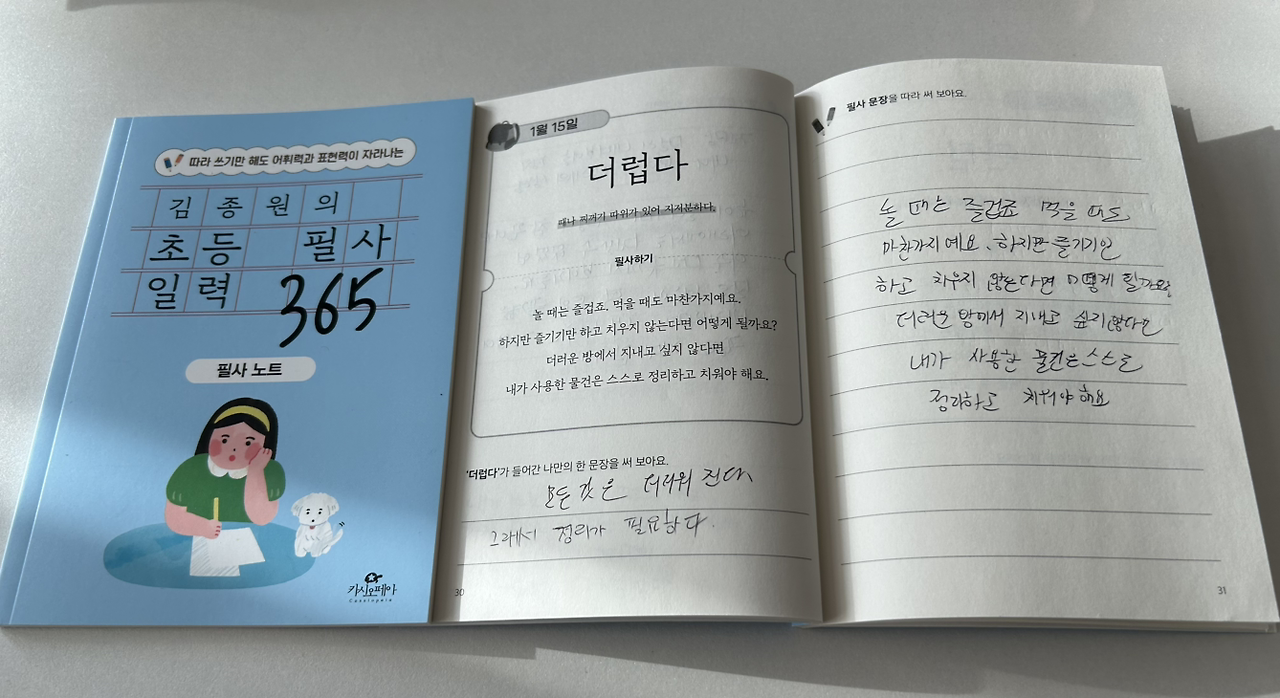 따라 쓰기만 해도 어휘력과 표현력이 자라나는
김종원의
초등 필사
일력 365
필사 노트
카시오페아
Cassiopeia
1월 15일
더럽다
때나 찌꺼기 따위가 있어 지저분하다.
필사하기
놀 때는 즐겁죠. 먹을 때도 마찬가지예요.
하지만 즐기기만 하고 치우지 않는다면 어떻게 될까요?
더러운 방에서 지내고 싶지 않다면
내가 사용한 물건은 스스로 정리하고 치워야 해요.
'더럽다'가 들어간 나만의 한 문장을 써 보아요.
모든 것은 더러워 진다
그래서 정리가 필요하다.
30
필사 문장을 따라 써 보아요.
놀 때는 즐겁죠 먹을 때도
마찬가지예요. 하지만 즐기기만
하고 치우지 않는다면 어떻게 될까요
더러운 방에서 지내고 싶지 않다면
내가 사용한 물건은 스스로
정리하고 치워야 해요
31